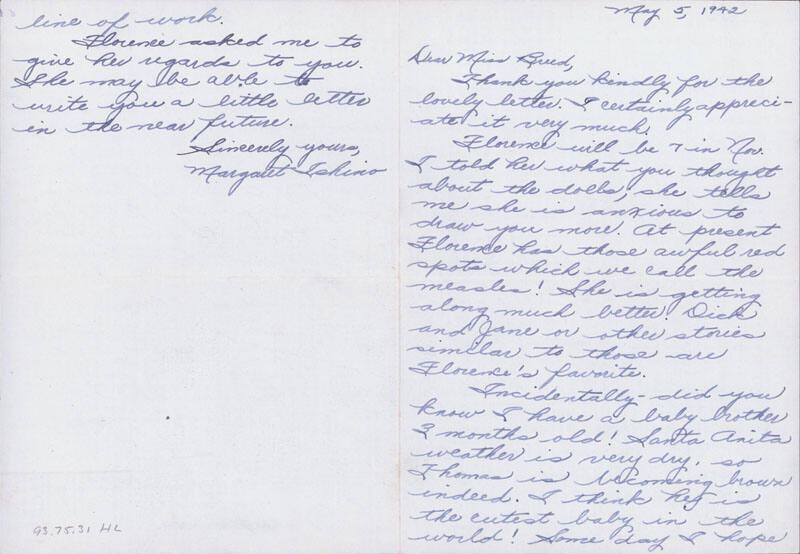 May 5, 1942
Dear Miss Breed,
Thank you kindly for the
lovely letter. I certainly appreci-
ate it very much.
Florence will be 7 in Nov.
I told her what you thought
about the dolls, she tells
me she is anxious to
draw you more. At present
Florence has those awful red
spots which we call the
measles! She is getting
along much better. Dick
and Jane or other stories
similar to those are
Florence's favorite.
Incidentally - did you
know I have a baby brother
3 months old! Santa Anita
weather is very dry, so
Thomas is becoming brown
indeed. I think he is
the cutest baby in the
world! Some day I hope
line of work.
Florence asked me to
give her regards to you.
She may be able to
write you a little letter
in the near future.
Sincerely yours,
Margaret Ishino
93.75.31 HL